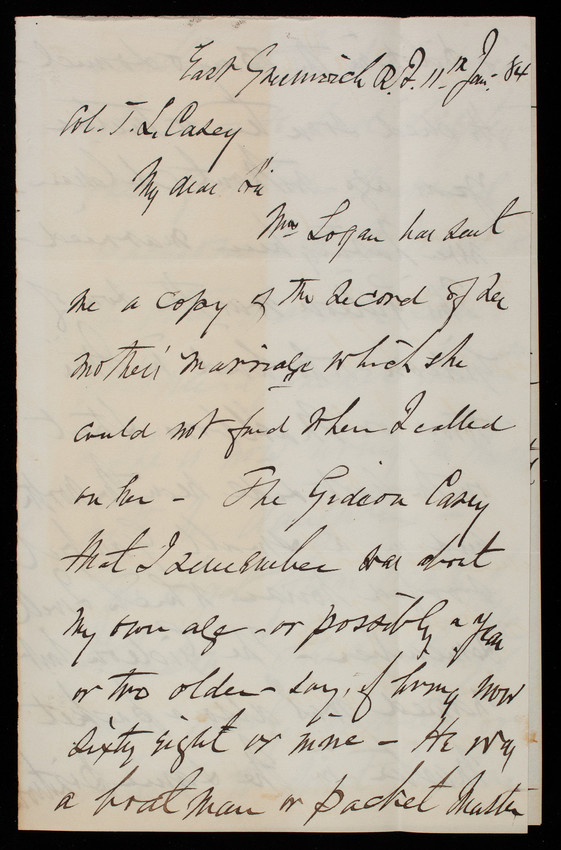 East Greenwich R.I. 11th Jan: 84
Col. T. L. Casey
My dear Sir
Mrs Logan has sent
me a copy of the record of her
mothers' marriage which she
could not find when I called
on her - The Gideon Casey
that I remember was about
my own age - or possibly a year
or two older - say, if living now
sixty eight or nine - He was
a boatman or packet Master